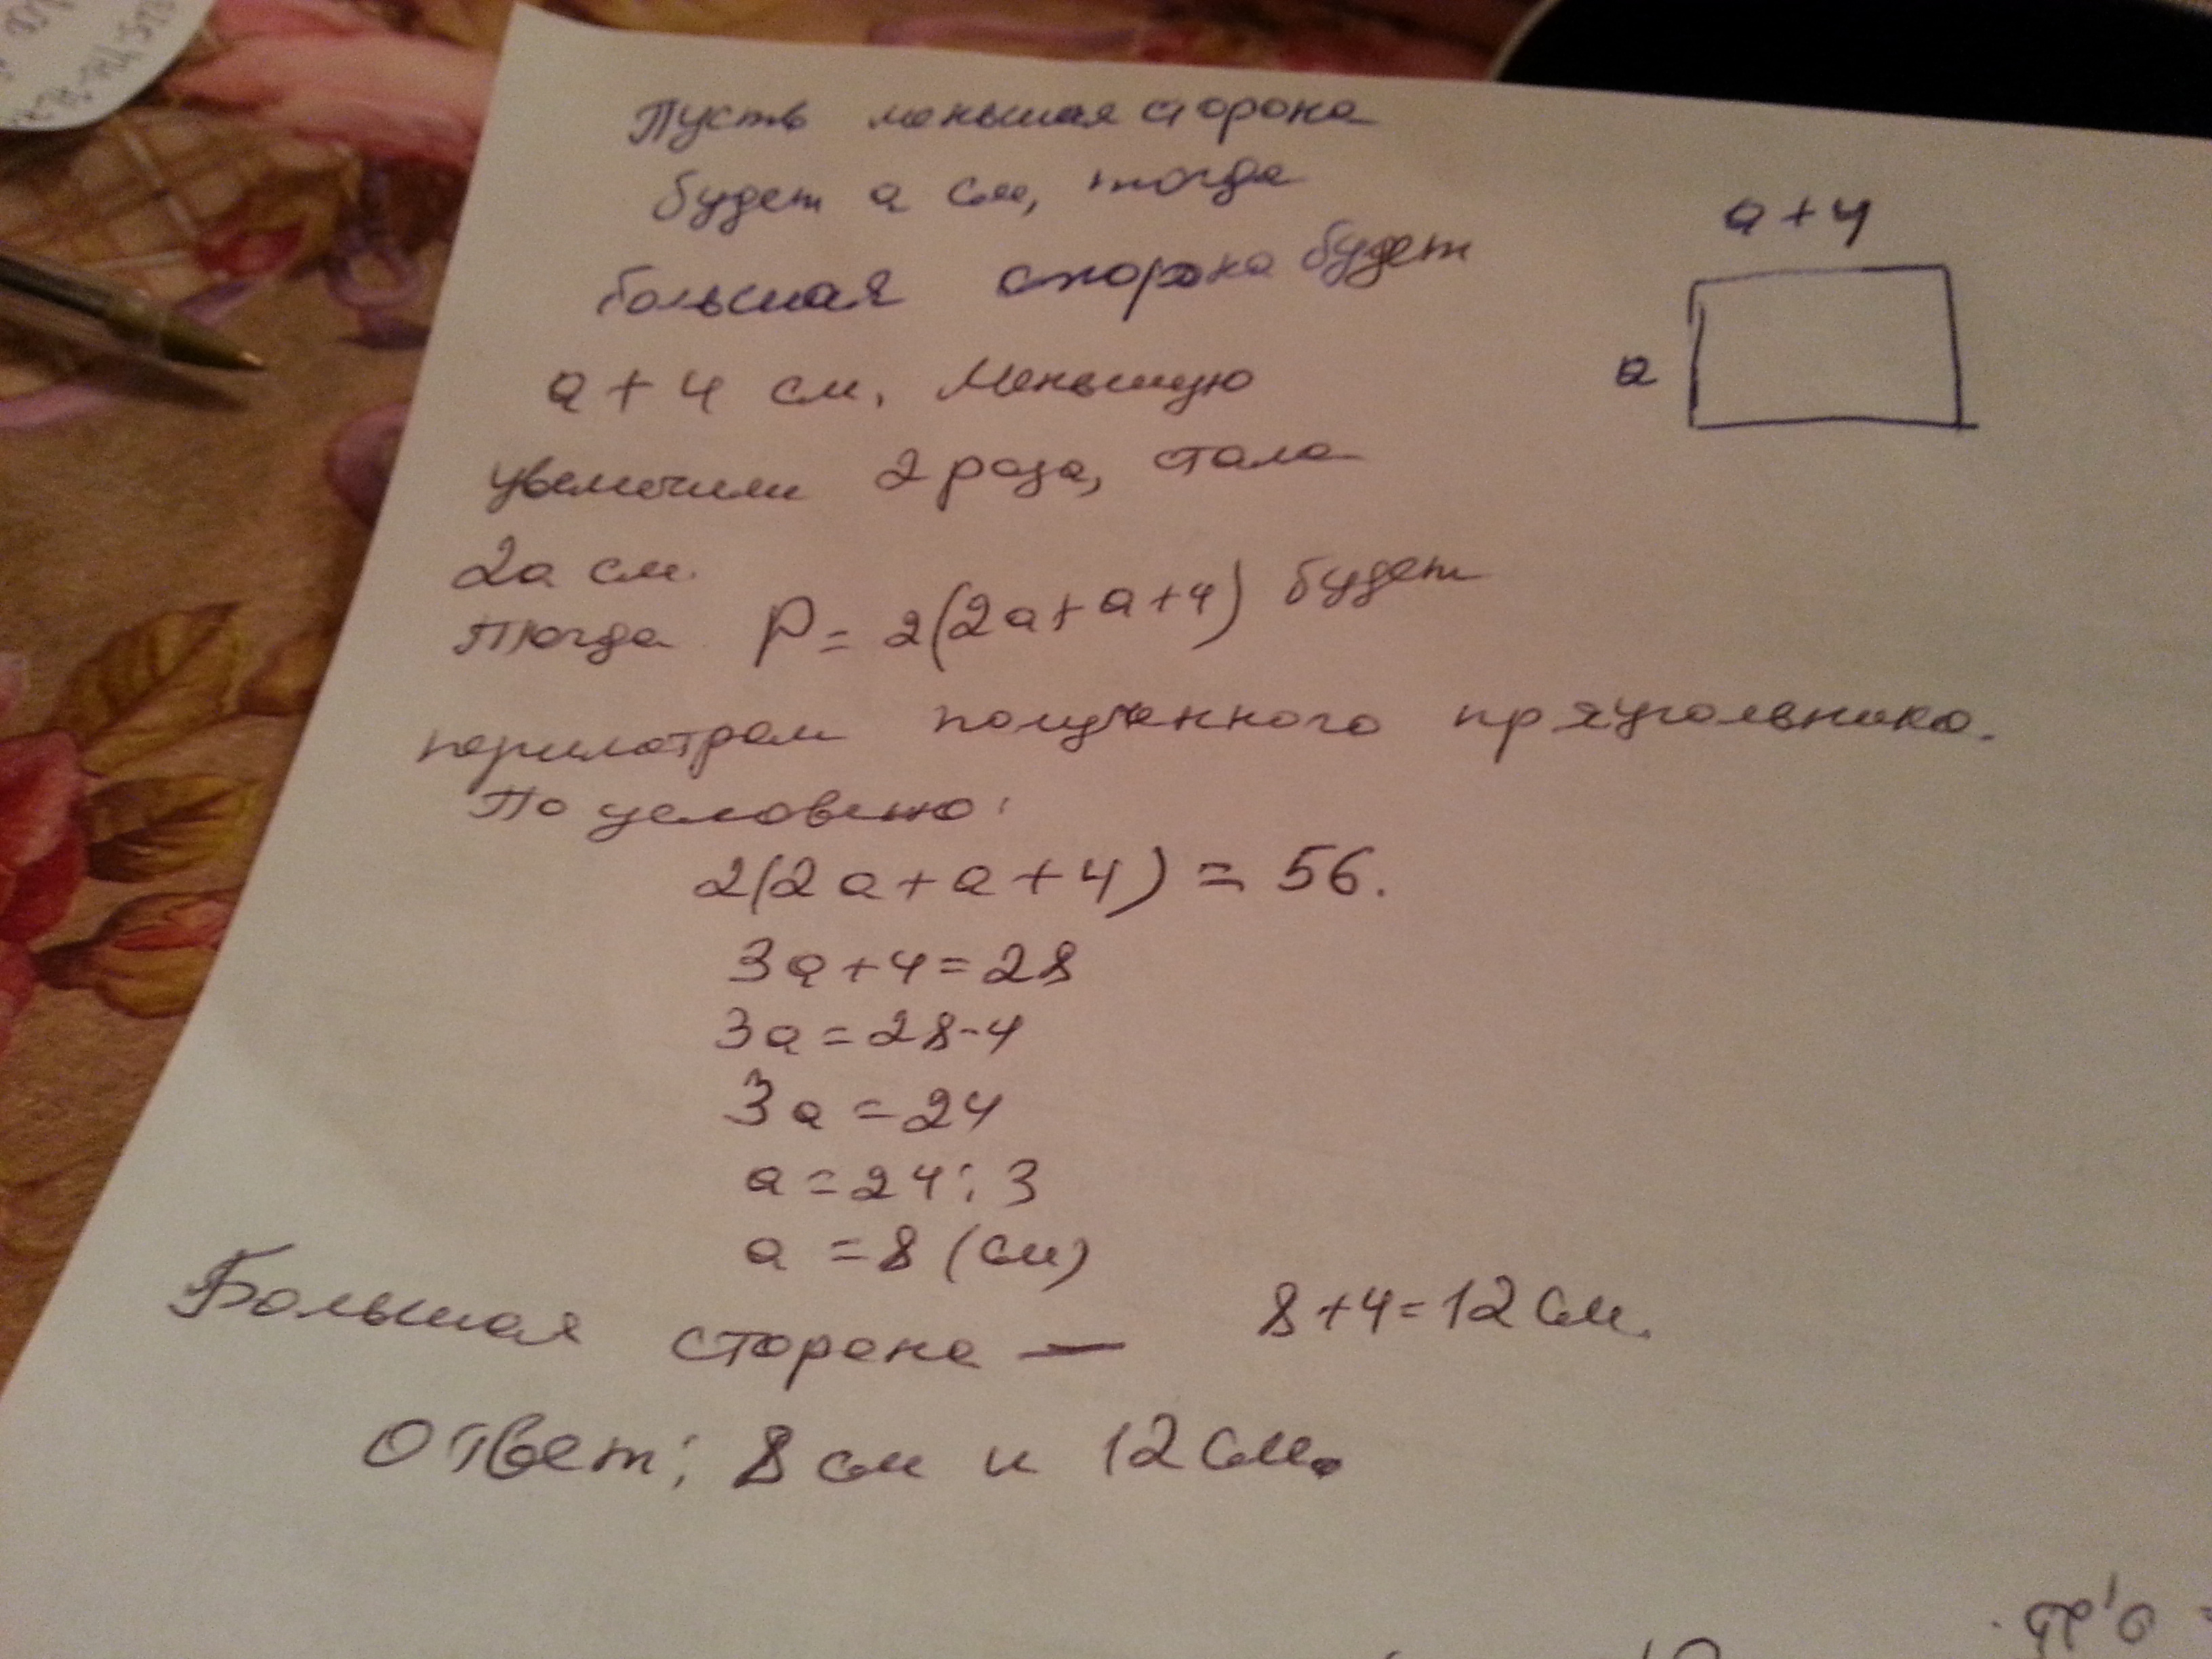 Пусть меньшая сторона
будет a см, тогда
большая сторона будет
a + 4 см. Меньшую
увеличили 2 раза, стала
2a см.
Тогда P = 2(2a + a + 4) будет
периметром полученного пряугольника.
По условию:
2(2a + a + 4) = 56.
3a + 4 = 28
3a = 28 - 4
3a = 24
a = 24 : 3
a = 8 (см)
Большая сторона — 8 + 4 = 12 см.
Ответ: 8 см и 12 см.
a + 4
a